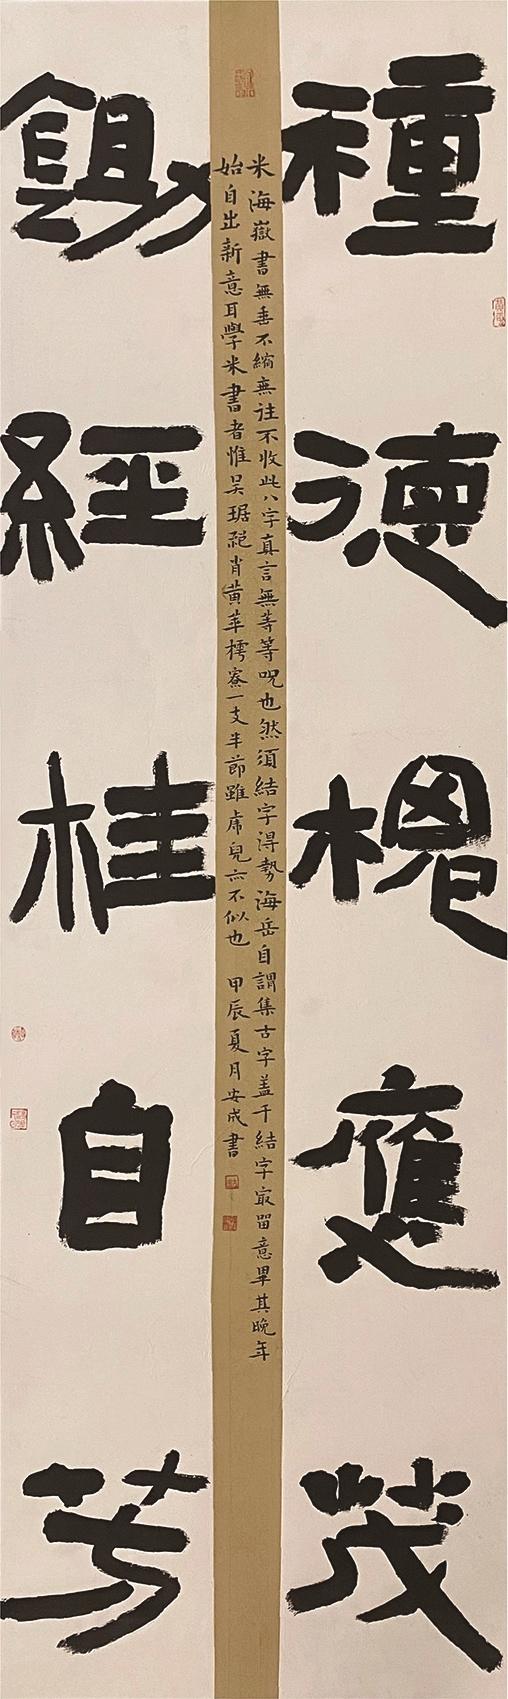 種德槐應茂
米海嶽書無垂不縮無往不收此八字真言無等等呪也然須結字得勢海岳自謂集古字盖于結字最留意畢其晚年
始自出新意耳學米書者惟吴琚絕肖黄華樗寮一支半節雖虎兒亦不似也 甲辰夏月安成書
錫經桂自芳